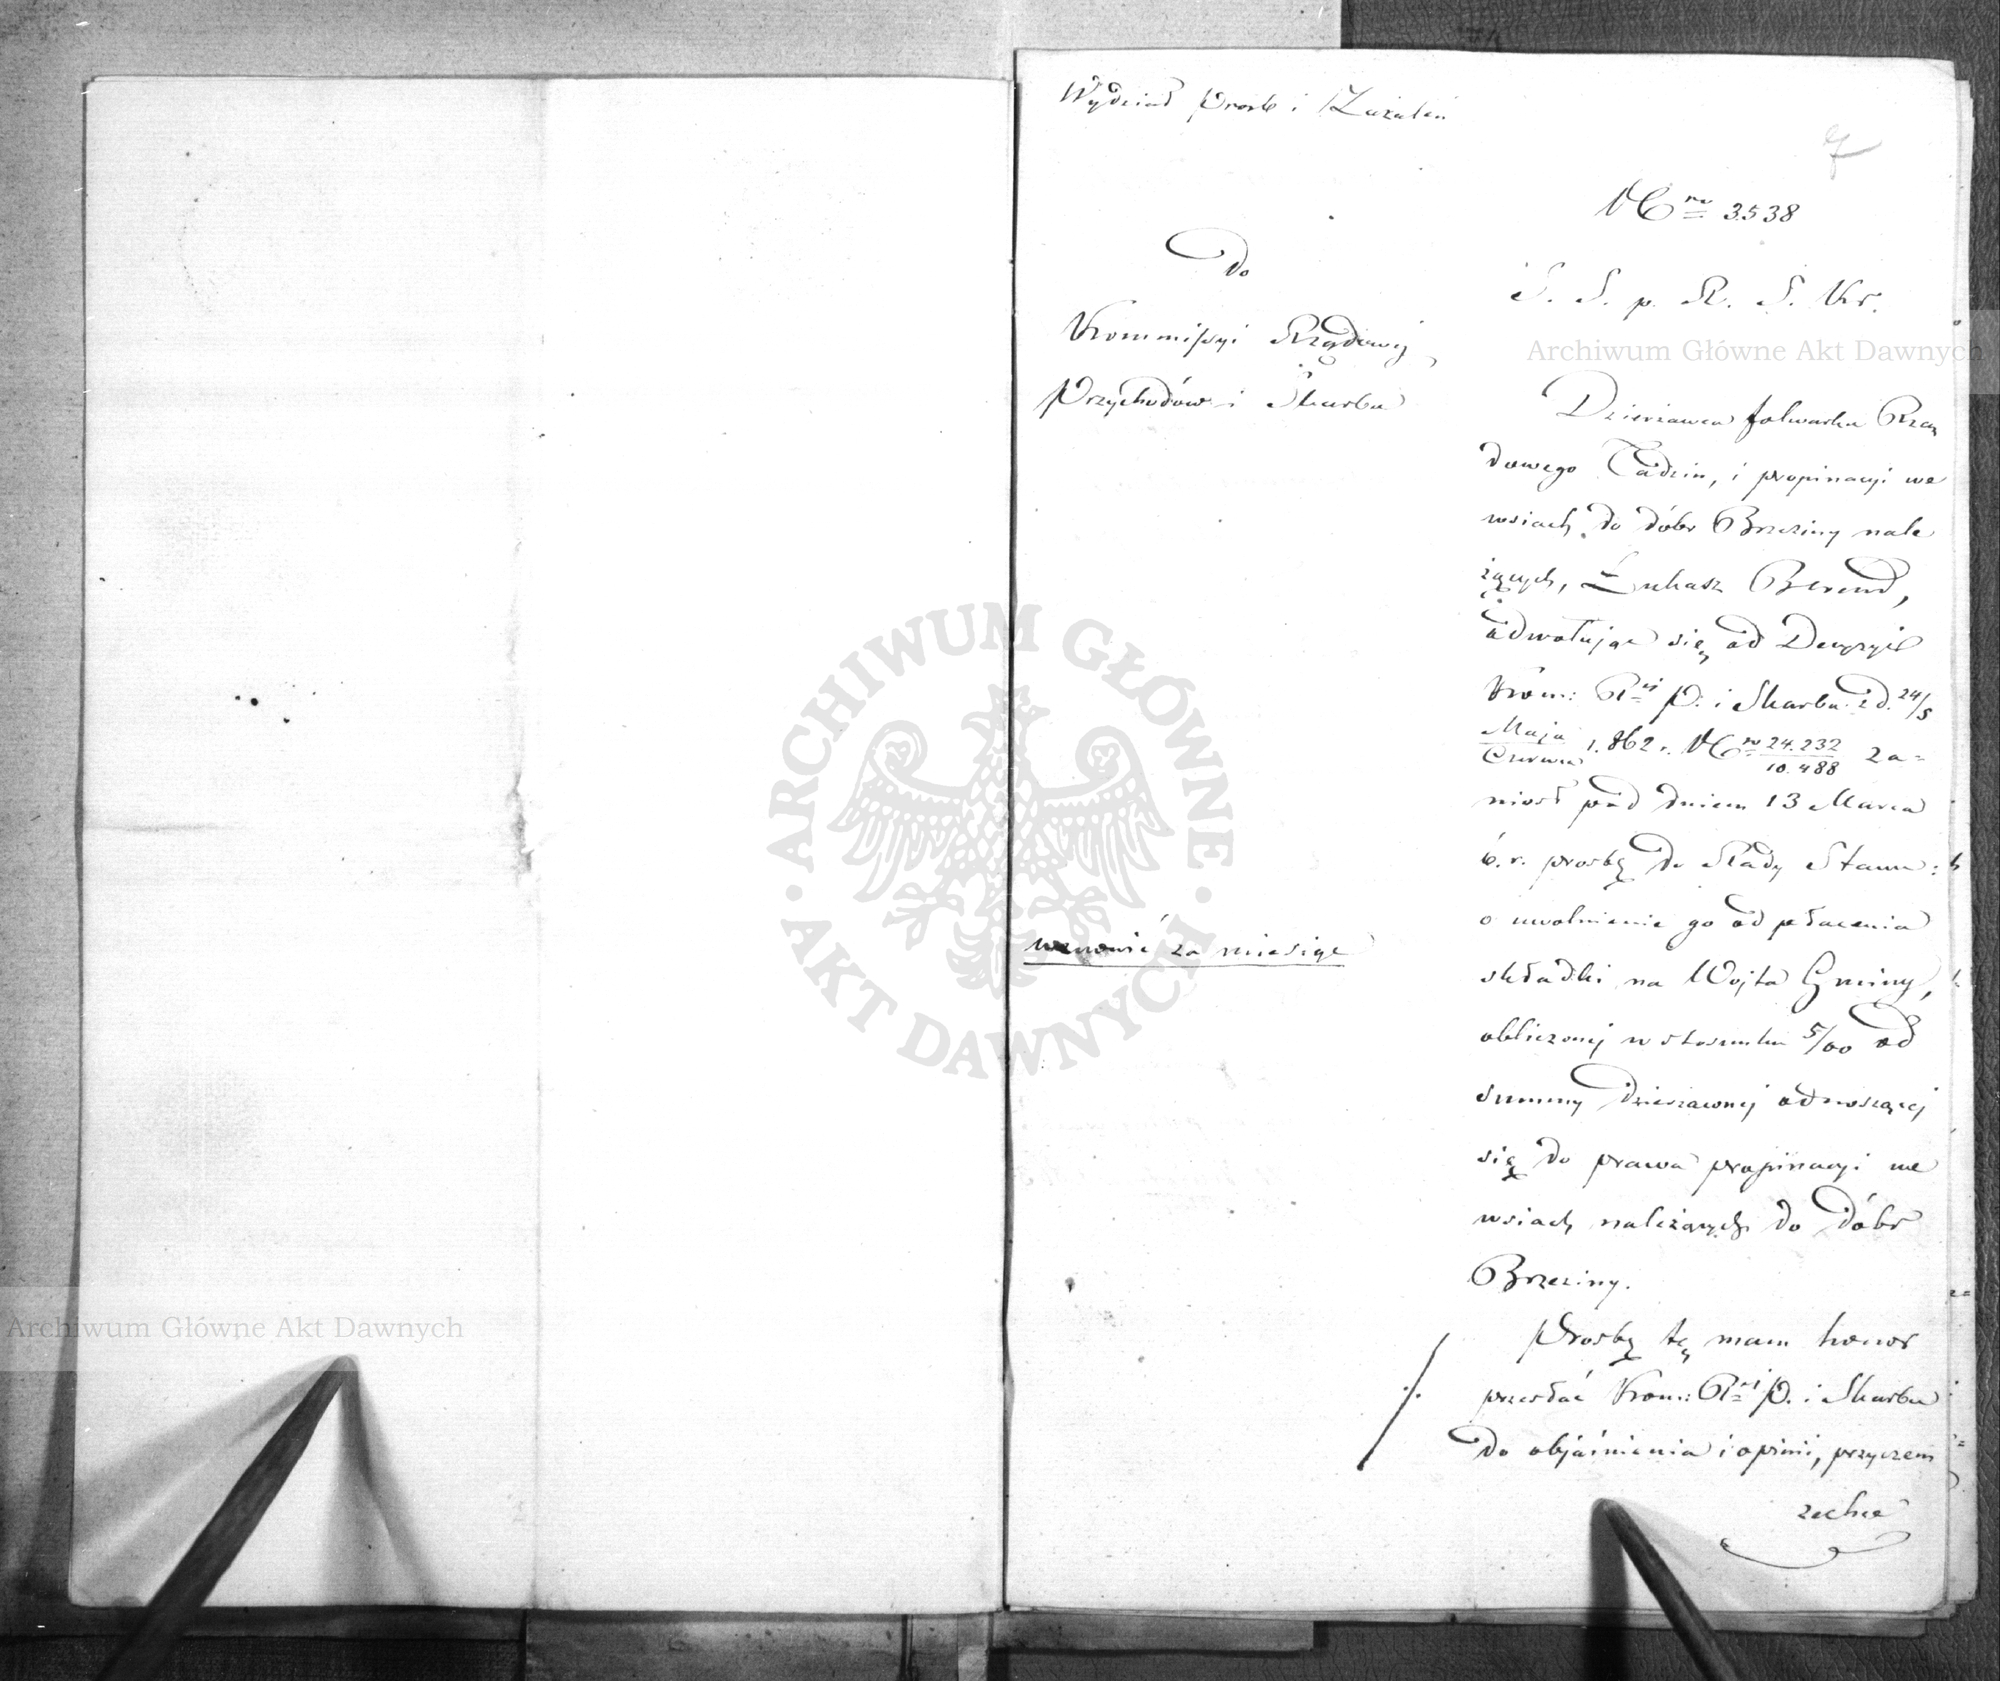 Wydział Prosb i Zażaleń
7
Nro 3538
Do
Kommissyi Rządowej
Przychodów i Skarbu
S. S. p. R. S. Kr.
Dzierżawca folwarku Rzą
dowego Tadzin, i propinacyi we
wsiach do dóbr Brzeziny nale
żących, Łukasz Berend,
odwołując się od Decyzyi
Kom: R-ei P. i Skarbu z d. 24/5
Maja/Czerwca 1862 r. Nro 24.232/10.488 za=
niosł pod dniem 13 Marca
b. r. prosbę do Rady Stanu:
o uwolnienie go od płacenia
składki na Wojta Gminy,
obliczonej w stosunku 5/00 od
summy dzierżawnej odnoszącej
się do prawa propinacyi we
wsiach należących do dóbr
Brzeziny.
wznowić za miesiąc
Prosbę tę mam honor
przesłać Kom: R-ei P. i Skarbu
do objaśnienia i opinii, przyczem
zechce
Archiwum Główne Akt Dawnych
Archiwum Główne Akt Dawnych
ARCHIWUM GŁÓWNE
AKT DAWNYCH